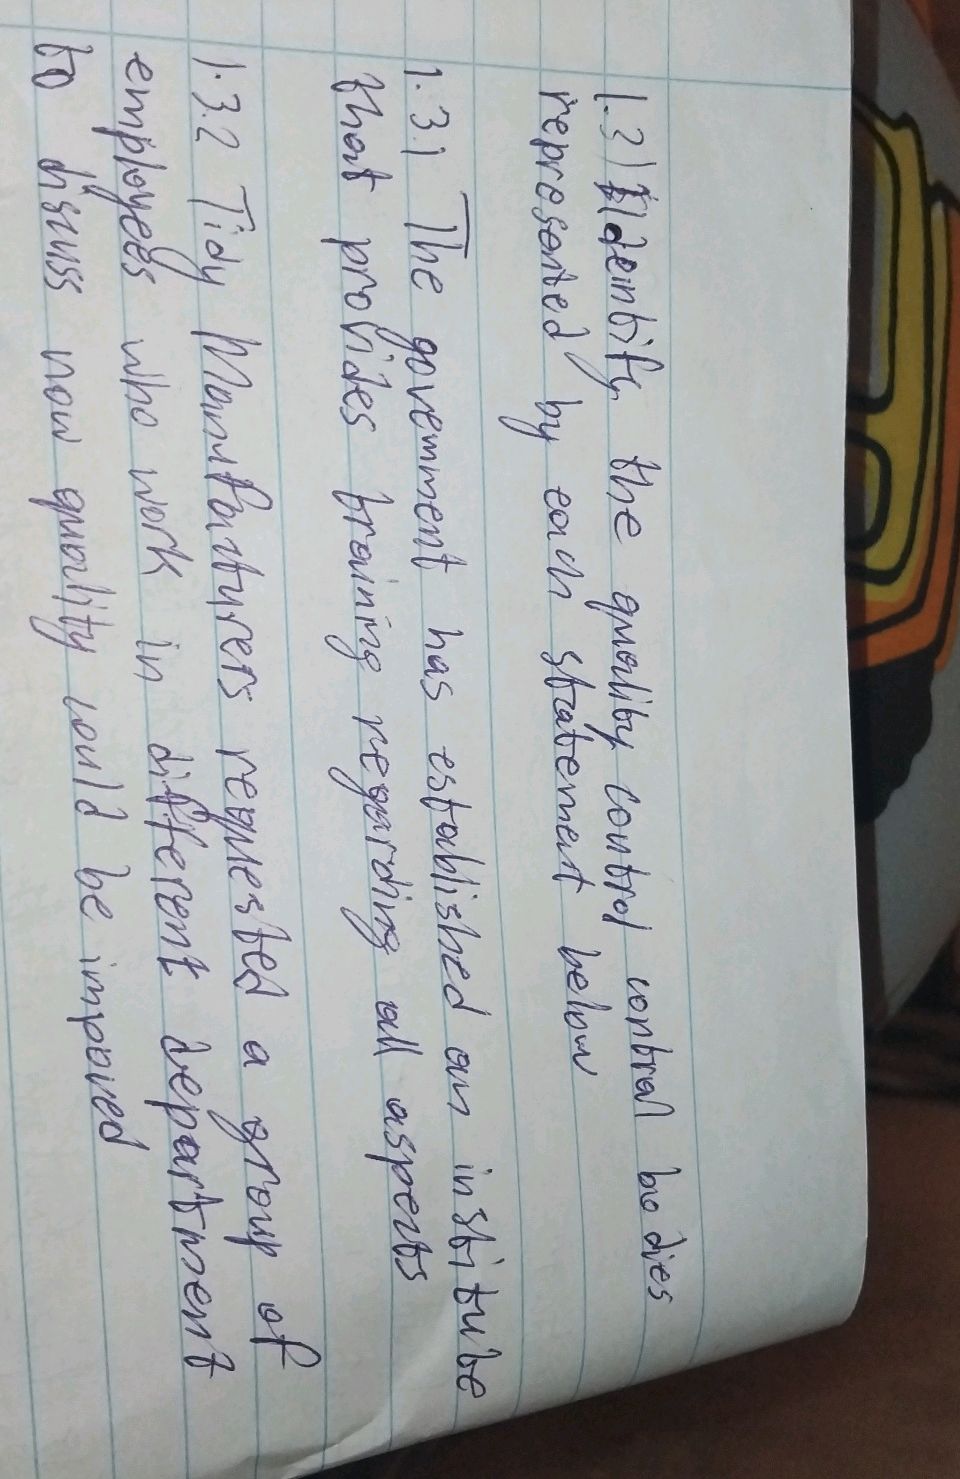 1.3) Identify the quality control control bodies
represented by each statement below
1.3.1 The government has established an institute
that provides training regarding all aspects
1.3.2 Tidy Manufacturers requested a group of
employees who work in different department
to discuss how quality could be improved